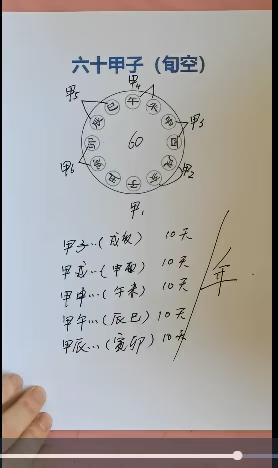 六十甲子（旬空）
甲4
甲5
巳 午 未
甲3
60
甲6
甲2
甲1
甲子…(戌亥) 10天
甲戌…(申酉) 10天
甲申…(午未) 10天
甲午…(辰巳) 10天
甲辰…(寅卯) 10天
年